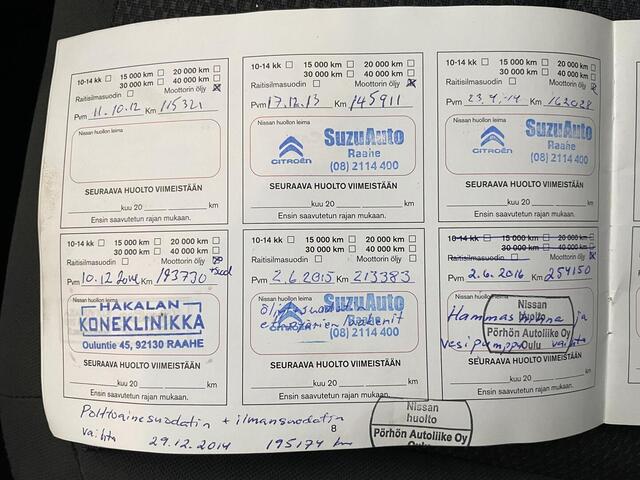 10-14 kk 15 000 km 20 000 km
30 000 km 40 000 km
Raitisilmasuodin Moottorin öljy
Pvm 11.10.12 Km 115321
Nissan huollon leima
SEURAAVA HUOLTO VIIMEISTÄÄN
kuu 20 km
Ensin saavutetun rajan mukaan.
10-14 kk 15 000 km 20 000 km
30 000 km 40 000 km
Raitisilmasuodin Moottorin öljy
Pvm 17.12.13 Km 145911
Nissan huollon leima
CITROËN
SuzuAuto
Raahe
(08) 2114 400
SEURAAVA HUOLTO VIIMEISTÄÄN
kuu 20 km
Ensin saavutetun rajan mukaan.
10-14 kk 15 000 km 20 000 km
30 000 km 40 000 km
Raitisilmasuodin Moottorin öljy
Pvm 23.4.-14 Km 163028
Nissan huollon leima
CITROËN
SuzuAuto
Raahe
(08) 2114 400
SEURAAVA HUOLTO VIIMEISTÄÄN
kuu 20 km
Ensin saavutetun rajan mukaan.
10-14 kk 15 000 km 20 000 km
30 000 km 40 000 km
Raitisilmasuodin Moottorin öljy
Pvm 10.12.2014 Km 193730
Nissan huollon leima
HAKALAN
KONEKLINIKKA
Ouluntie 45, 92130 RAAHE
SEURAAVA HUOLTO VIIMEISTÄÄN
kuu 20 km
Ensin saavutetun rajan mukaan.
10-14 kk 15 000 km 20 000 km
30 000 km 40 000 km
Raitisilmasuodin Moottorin öljy
Pvm 2.6.2015 Km 213383
Nissan huollon leima
SuzuAuto
Raahe
(08) 2114 400
SEURAAVA HUOLTO VIIMEISTÄÄN
kuu 20 km
Ensin saavutetun rajan mukaan.
10-14 kk 15 000 km 20 000 km
30 000 km 40 000 km
Raitisilmasuodin Moottorin öljy
Pvm 2.6.2016 Km 254150
Nissan huollon leima
Hammashihna ja
vesipumppu vaihto
Nissan
huolto
Pörhön Autoliike Oy
Oulu
SEURAAVA HUOLTO VIIMEISTÄÄN
kuu 20 km
Ensin saavutetun rajan mukaan.
Polttoainesuodatin + ilmansuodatin
vaihto 29.12.2014 195174 km
8
Nissan
huolto
Pörhön Autoliike Oy
Oulu